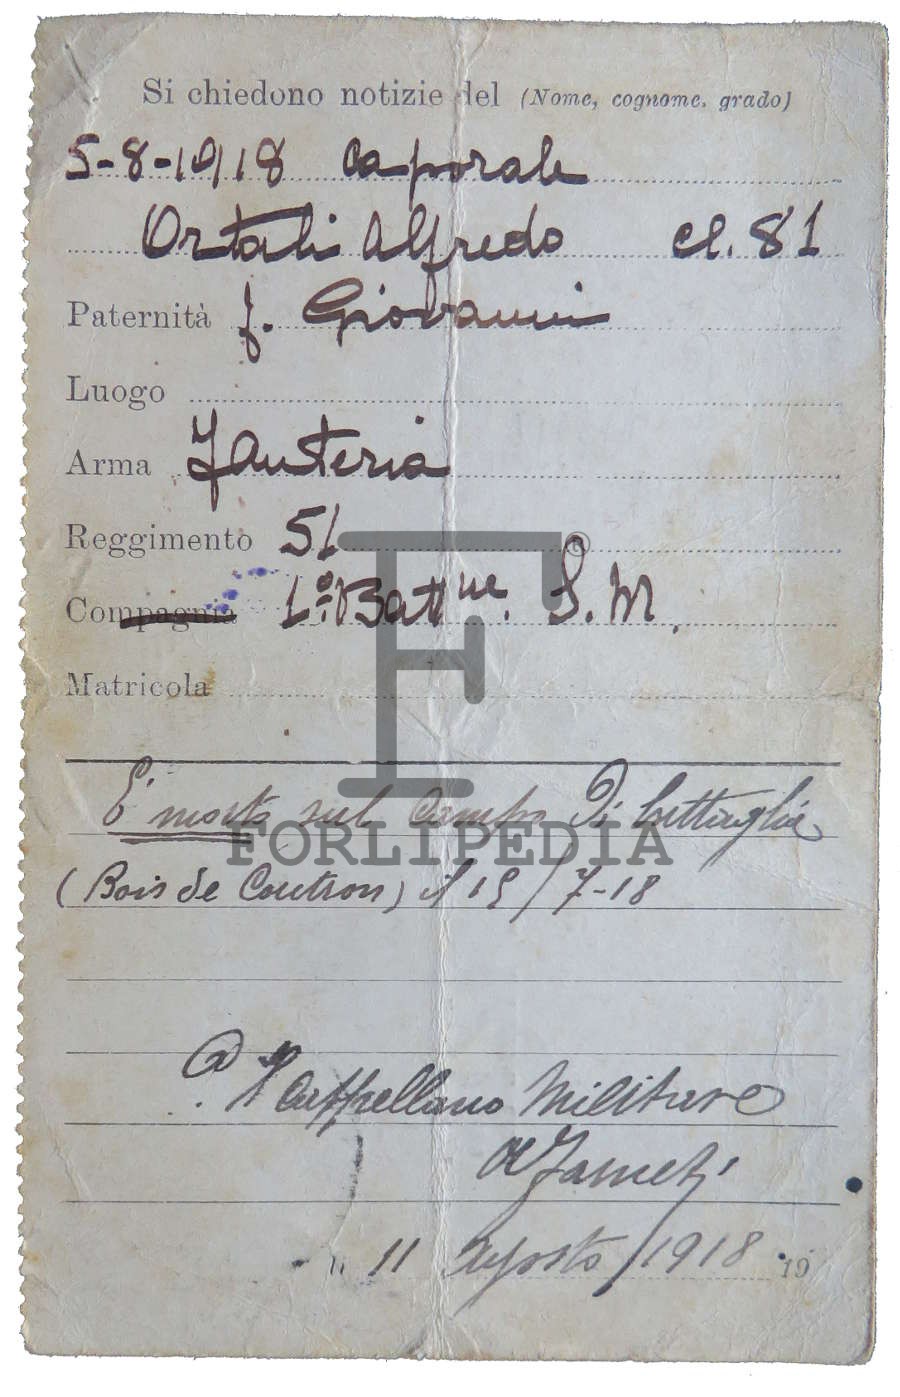 Si chiedono notizie del (Nome, cognome, grado)
5-8-1918 Caporale
Ortali Alfredo cl. 81
Paternità f. Giovanni
Luogo
Arma Fanteria
Reggimento 51
Compagnia 1° Batt ne. S. M.
Matricola
E' morto sul campo di battaglia
FORLIPEDIA
(Bois de Coutron) il 15/7-18
Il Cappellano Militare
li 11 Agosto 1918 19